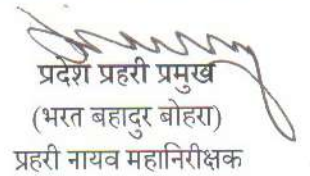 प्रदेश प्रहरी प्रमुख
(भरत बहादुर बोहरा)
प्रहरी नायव महानिरीक्षक